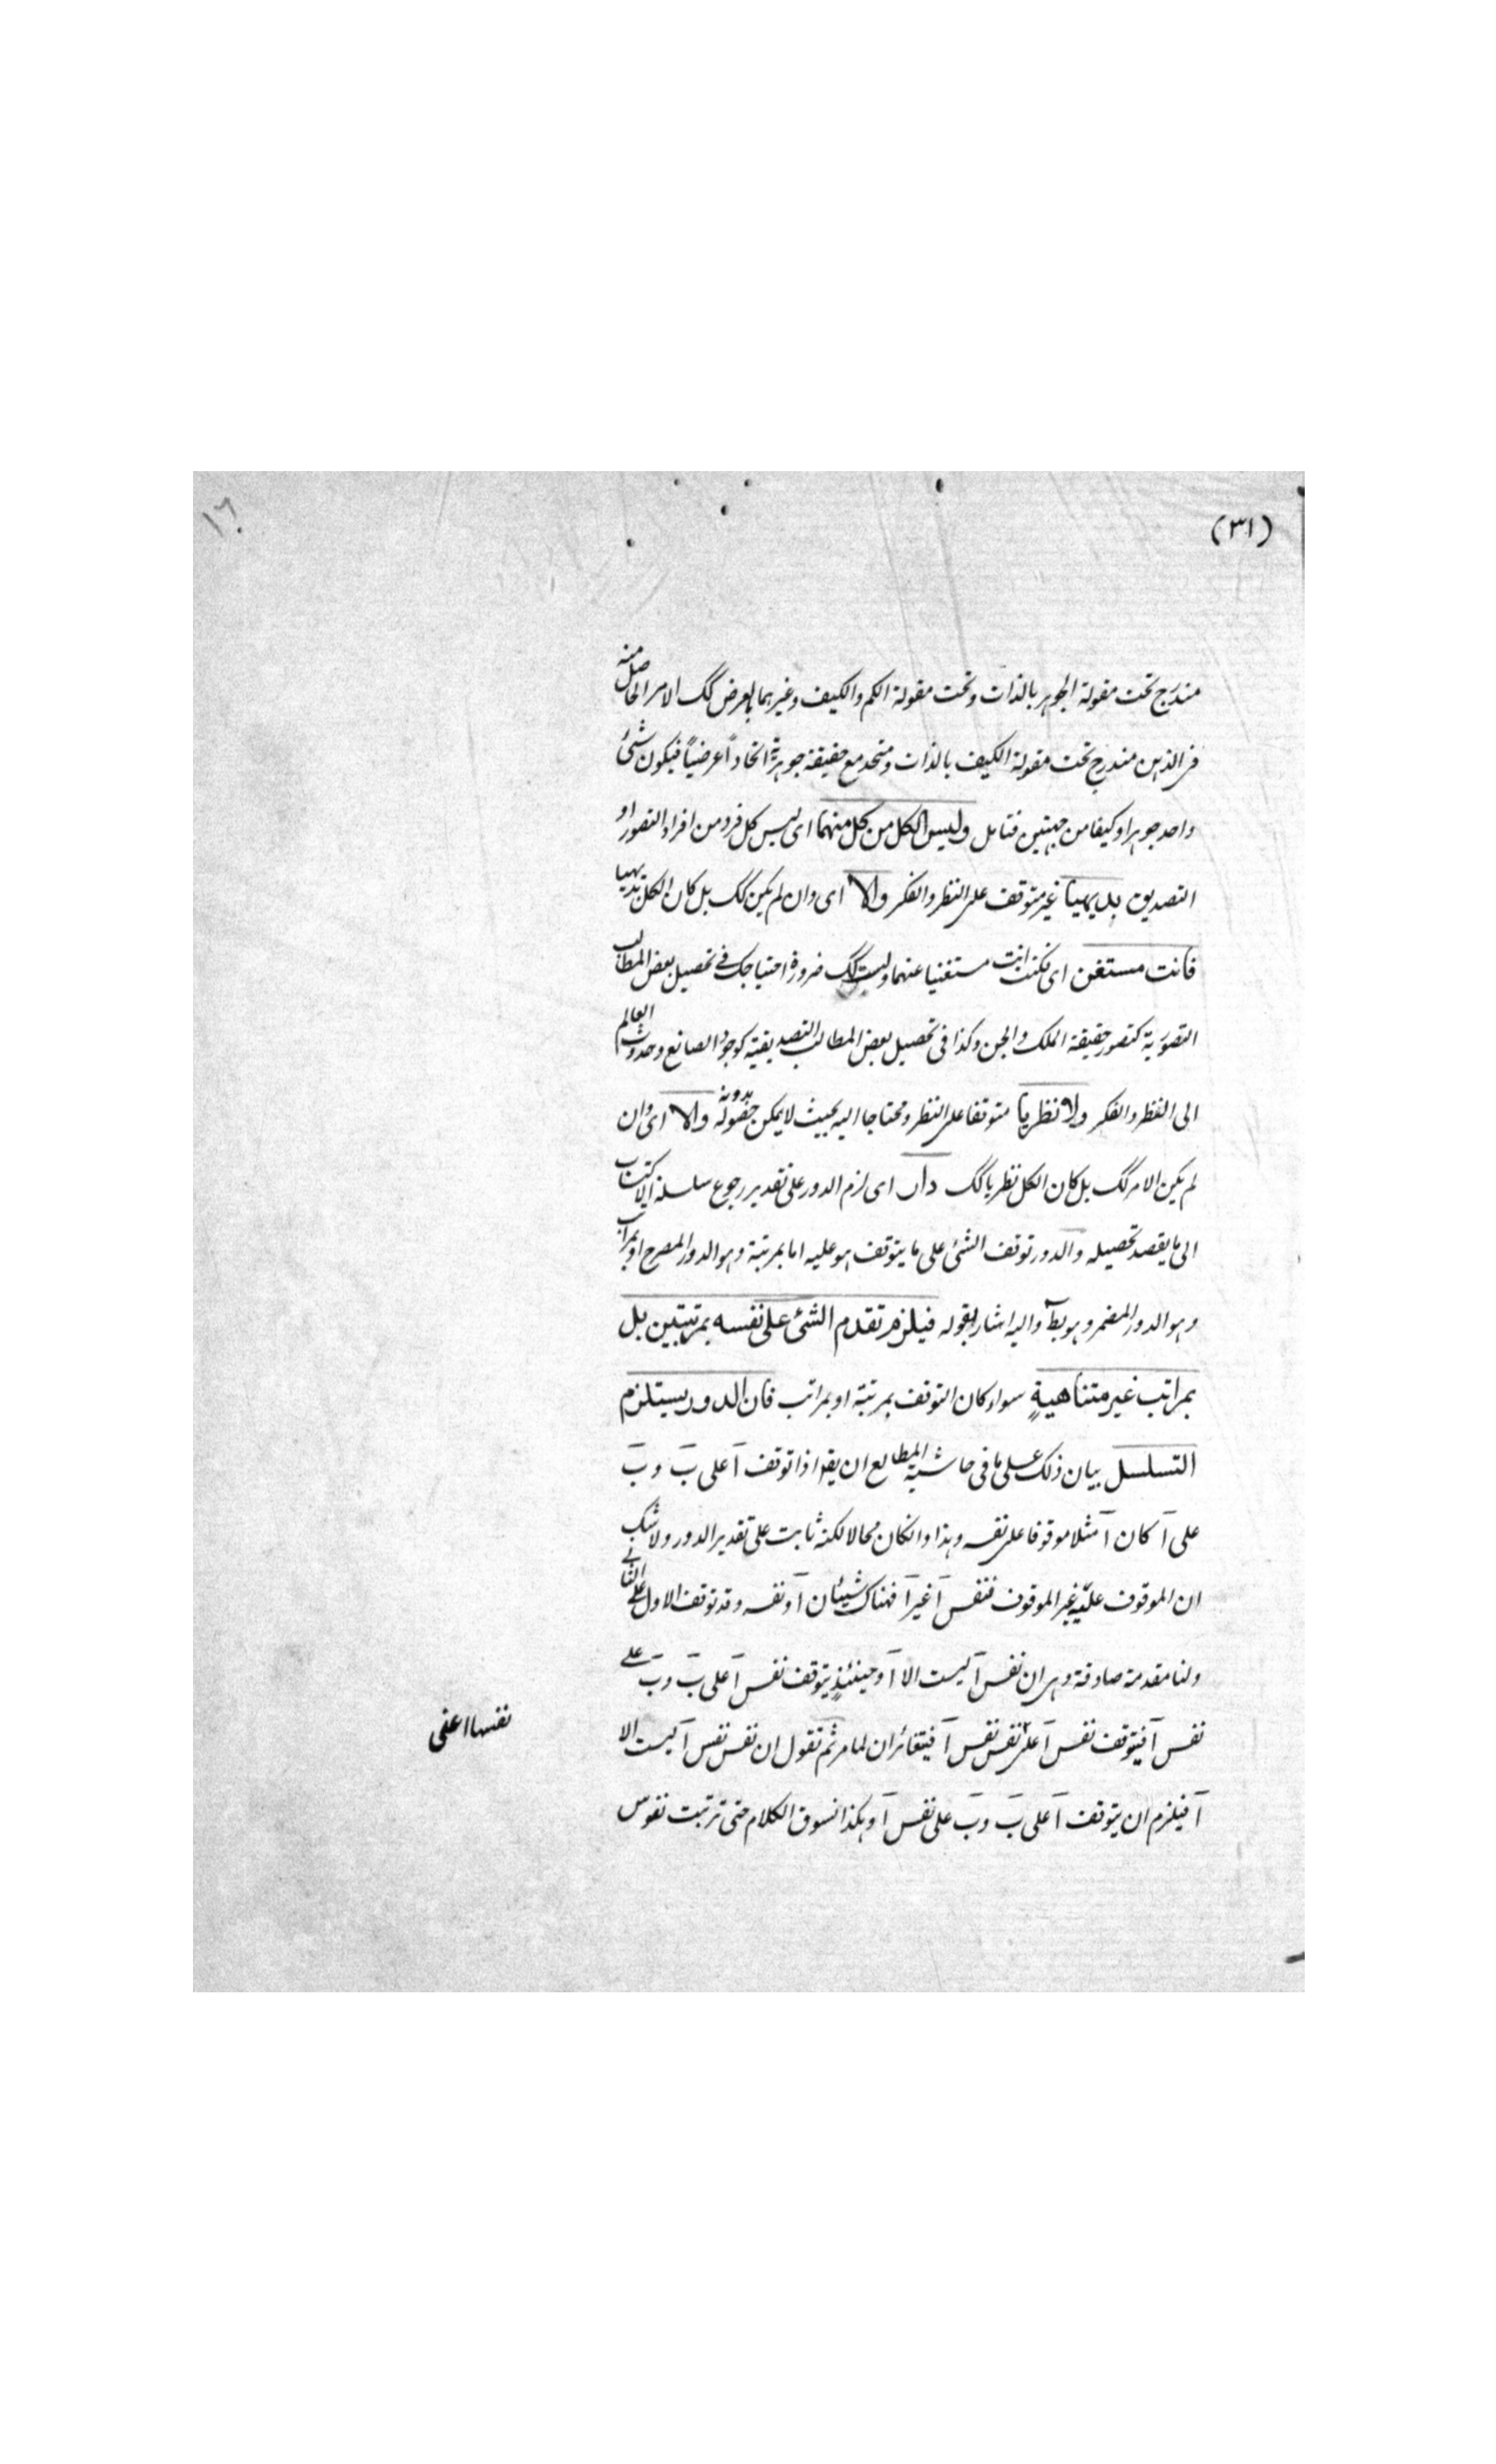 (٣١)
١٦
مندرج تحت مقولة الجوهر بالذات وتحت مقولة الكم والكيف وغيرهما بالعرض كك الامر الحاصل منه
فى الذهن مندرج تحت مقولة الكيف بالذات ومتحد مع حقيقة جوهرية اتحاداً عرضياً فيكون شئ
واحد جوهرا وكيفا من جهتين فتامل وليس الكل من كل منهما اى ليس كل فرد من افراد التصور او
التصديق بديهيا غير متوقف على النظر والفكر والا اى وان لم يكن كك بل كان الكل بديهيا
فانت مستغن اى فكنت انت مستغنيا عنهما وليست كك ضرورة احتياجك فى تحصيل بعض المطالب
التصورية كتصور حقيقة الملك والجن وكذا فى تحصيل بعض المطالب التصديقية كوجود الصانع وحدوث العالم
الى النظر والفكر ولا نظريا متوقفا على النظر ومحتاجا اليه بحيث لا يمكن حصوله بدونه والا اى وان
لم يكن الامر كك بل كان الكل نظريا كك دار اى لزم الدور على تقدير رجوع سلسلة الاكتساب
الى ما يقصد تحصيله والدور توقف الشئ على ما يتوقف هو عليه اما بمرتبة وهو الدور المصرح او بمراتب
وهو الدور المضمر وهو بط واليه اشار بقوله فيلزم تقدم الشئ على نفسه بمرتبتين بل
بمراتب غير متناهية سواء كان التوقف بمرتبة او بمراتب فان الدور يستلزم
التسلسل بيان ذلك على ما فى حاشية المطالع ان يقو اذا توقف آ على بَ وبَ
على آ كان آ مثلا موقوفا على نفسه وهذا وان كان محالا لكنه ثابت على تقدير الدور ولا شك
ان الموقوف عليه غير الموقوف فنفس آ غير آ فهناك شيئان آ ونفسه وقد توقف الاول على الثانى
ولنا مقدمة صادقة وهى ان نفس آ ليست الا آ وحينئذٍ يتوقف نفس آ على بَ وبَ على
نفس آ فيتوقف نفس آ على نفس نفس آ فيتغائران لما مر ثم نقول ان نفس نفس آ ليست الا
نفسها اعنى
آ فيلزم ان يتوقف آ على بَ وبَ على نفس آ وهكذا نسوق الكلام حتى ترتبت نفوس